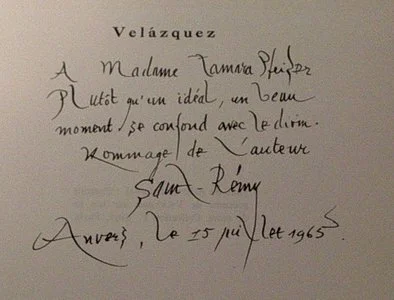 Velázquez
A Madame Tamara Pfeifer
Plutôt qu'un idéal, un beau
moment se confond avec le divin.
Hommage de l'auteur
Saint-Rémy
Anvers, le 15 juillet 1965.